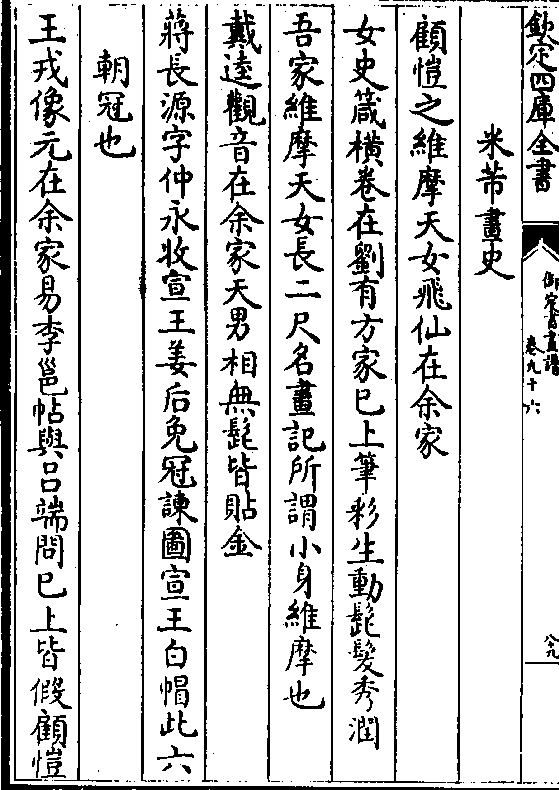 欽定四庫全書
御定書畫譜
卷九十六
八九
米芾畫史
顧愷之維摩天女飛仙在余家
女史箴橫卷在劉有方家已上筆彩生動髭髮秀潤
吾家維摩天女長二尺名畫記所謂小身維摩也
戴逵觀音在余家天男相無髭皆貼金
蔣長源字仲永收宣王姜后免冠諫圖宣王白帽此六
朝冠也
王戎像元在余家易李邕帖與呂端問已上皆假顧愷